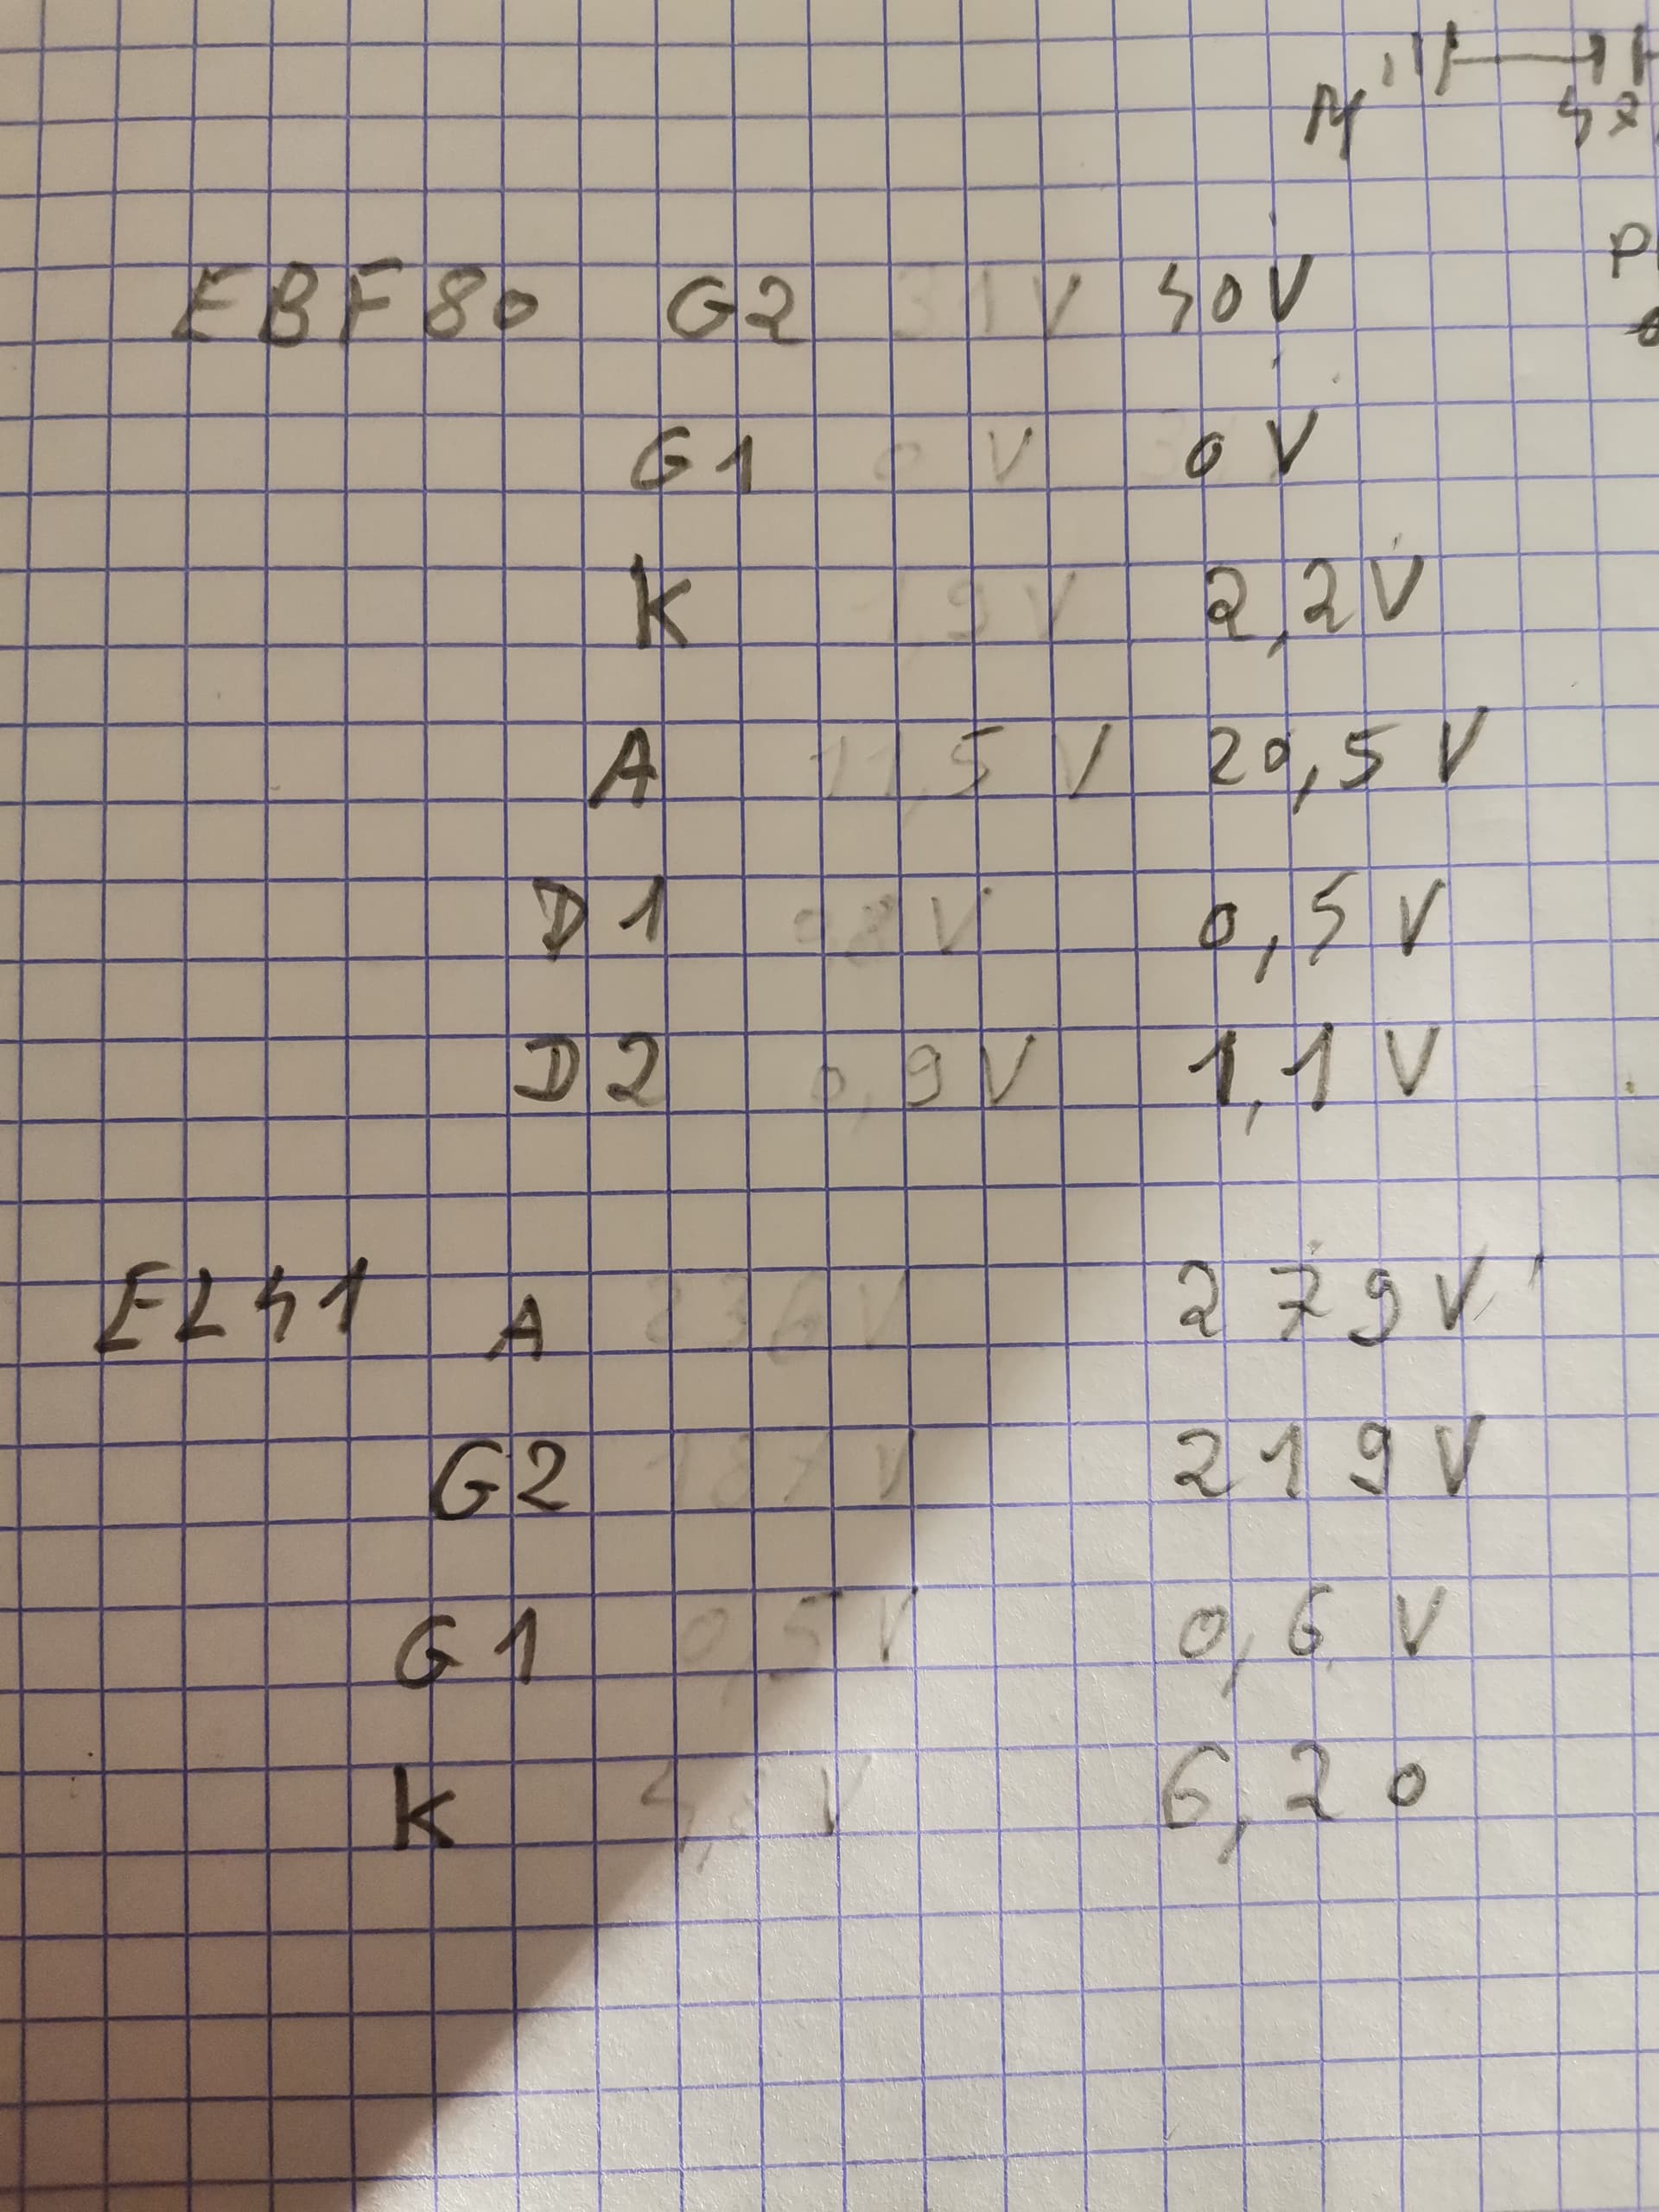 M 4x
P
EBF80 G2 31V 40V
G1 0 V 0 V
K 1,9V 2,2V
A 11,5 V 20,5 V
D1 0,8 V 0,5 V
D2 0,9 V 1,1 V
EL41 A 236V 279V
G2 187 V 219V
G1 0,5V 0,6 V
K V 6,20